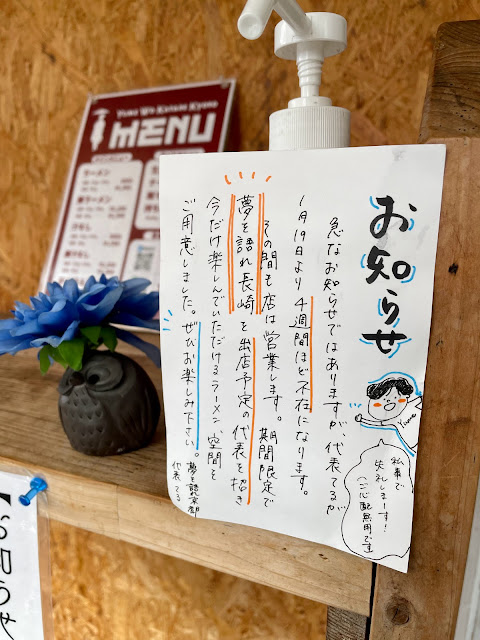 お知らせ
急なお知らせではありますが、代表てるが
1月19日より4週間ほど不在になります。
その間も店は営業します。期間限定で
夢を語れ長崎を出店予定の代表を招き
今だけ楽しんでいただけるラーメン、空間を
ご用意しました。ぜひお楽しみ下さい。
夢を語れ京都
代表てる
私事で
失礼しまーす!
(ご心配無用です)
Yume Wo Katare Kyoto
MENU
ラーメン
【お知らせ